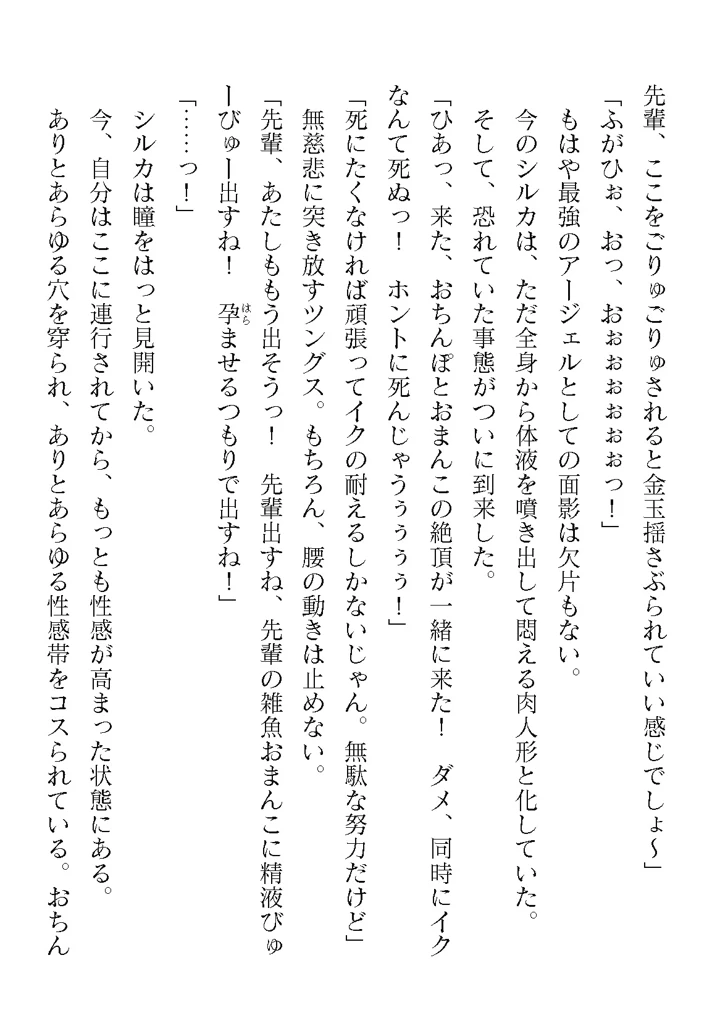 先輩、ここをごりゅごりゅされると金玉揺さぶられていい感じでしょ～」
「ふがひぉ、おっ、おぉぉぉぉぉっ！」
もはや最強のアージェルとしての面影は欠片もない。
今のシルカは、ただ全身から体液を噴き出して悶える肉人形と化していた。
そして、恐れていた事態がついに到来した。
「ひあっ、来た、おちんぽとおまんこの絶頂が一緒に来た！　ダメ、同時にイク
なんて死ぬっ！　ホントに死んじゃうぅぅぅ！」
「死にたくなければ頑張ってイクの耐えるしかないじゃん。無駄な努力だけど」
無慈悲に突き放すツングス。もちろん、腰の動きは止めない。
「先輩、あたしももう出そうっ！　先輩出すね、先輩の雑魚おまんこに精液びゅ
ーびゅー出すね！　孕ませるつもりで出すね！」
「……っ！」
シルカは瞳をはっと見開いた。
今、自分はここに連行されてから、もっとも性感が高まった状態にある。
ありとあらゆる穴を穿られ、ありとあらゆる性感帯をコスられている。おちん